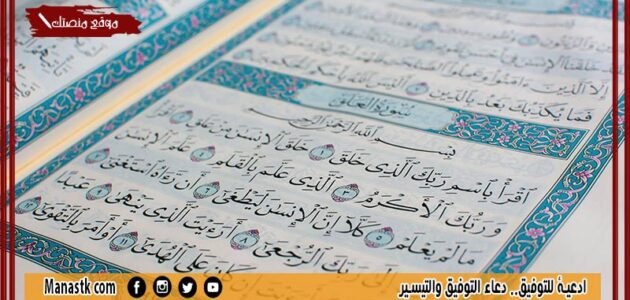 موقع منصتك
إِلَّا ٱلَّذِينَ ءَامَنُوا۟ وَعَمِلُوا۟
فَمَا يُكَذِّبُكَ بَعْدُ بِٱلدِّينِ ٧ أَلَيْسَ ٱللَّهُ بِأَحْكَمِ ٱلْحَٰكِمِينَ
سُورَةُ ٱلْعَلَقِ
بِسْمِ ٱللَّهِ ٱلرَّحْمَٰنِ ٱلرَّحِيمِ
ٱقْرَأْ بِٱسْمِ رَبِّكَ ٱلَّذِى خَلَقَ ١ خَلَقَ ٱلْإِنسَٰنَ مِنْ عَلَقٍ ٢ ٱقْرَأْ
وَرَبُّكَ ٱلْأَكْرَمُ ٣ ٱلَّذِى عَلَّمَ بِٱلْقَلَمِ ٤ عَلَّمَ ٱلْإِنسَٰنَ
مَا لَمْ يَعْلَمْ ٥ كَلَّآ إِنَّ ٱلْإِنسَٰنَ لَيَطْغَىٰٓ ٦ أَن رَّءَاهُ ٱسْتَغْنَىٰٓ ٧
إِلَىٰ رَبِّكَ ٱلرُّجْعَىٰٓ ٨ أَرَءَيْتَ ٱلَّذِى يَنْهَىٰ ٩ عَبْدًا
كَانَ عَلَى ٱلْهُدَىٰٓ ١١ أَوْ أَمَرَ بِٱلتَّقْوَىٰٓ ١٢
ادعية للتوفيق.. دعاء التوفيق والتيسير
Manastk.com